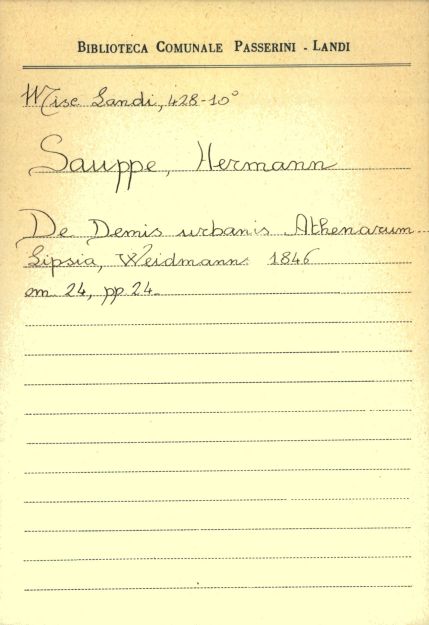 BIBLIOTECA COMUNALE PASSERINI - LANDI
Misc Landi, 428-10°
Sauppe, Hermann
De Demis urbanis Athenarum
Lipsia, Weidmann. 1846
cm 24, pp 24.